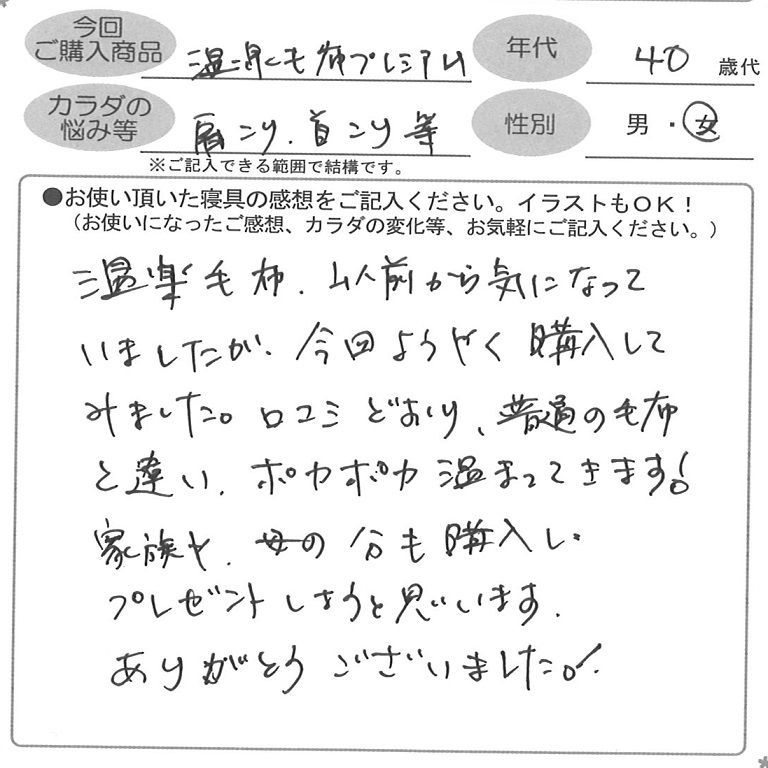 今回
ご購入商品
温楽毛布プレミアム
年代
40 歳代
カラダの
悩み等
肩こり、首こり等
性別
男・女
※ご記入できる範囲で結構です。
●お使い頂いた寝具の感想をご記入ください。イラストもOK！
（お使いになったご感想、カラダの変化等、お気軽にご記入ください。）
温楽毛布、以前から気になって
いましたが、今回ようやく購入して
みました。口コミどおり、普通の毛布
と違い、ポカポカ温まってきます！
家族や、母の分も購入し
プレゼントしようと思います。
ありがとうございました。！